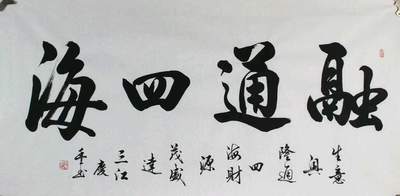 融通四海
生意
興
隆通
四
海財
源
茂盛
達
三江
慶